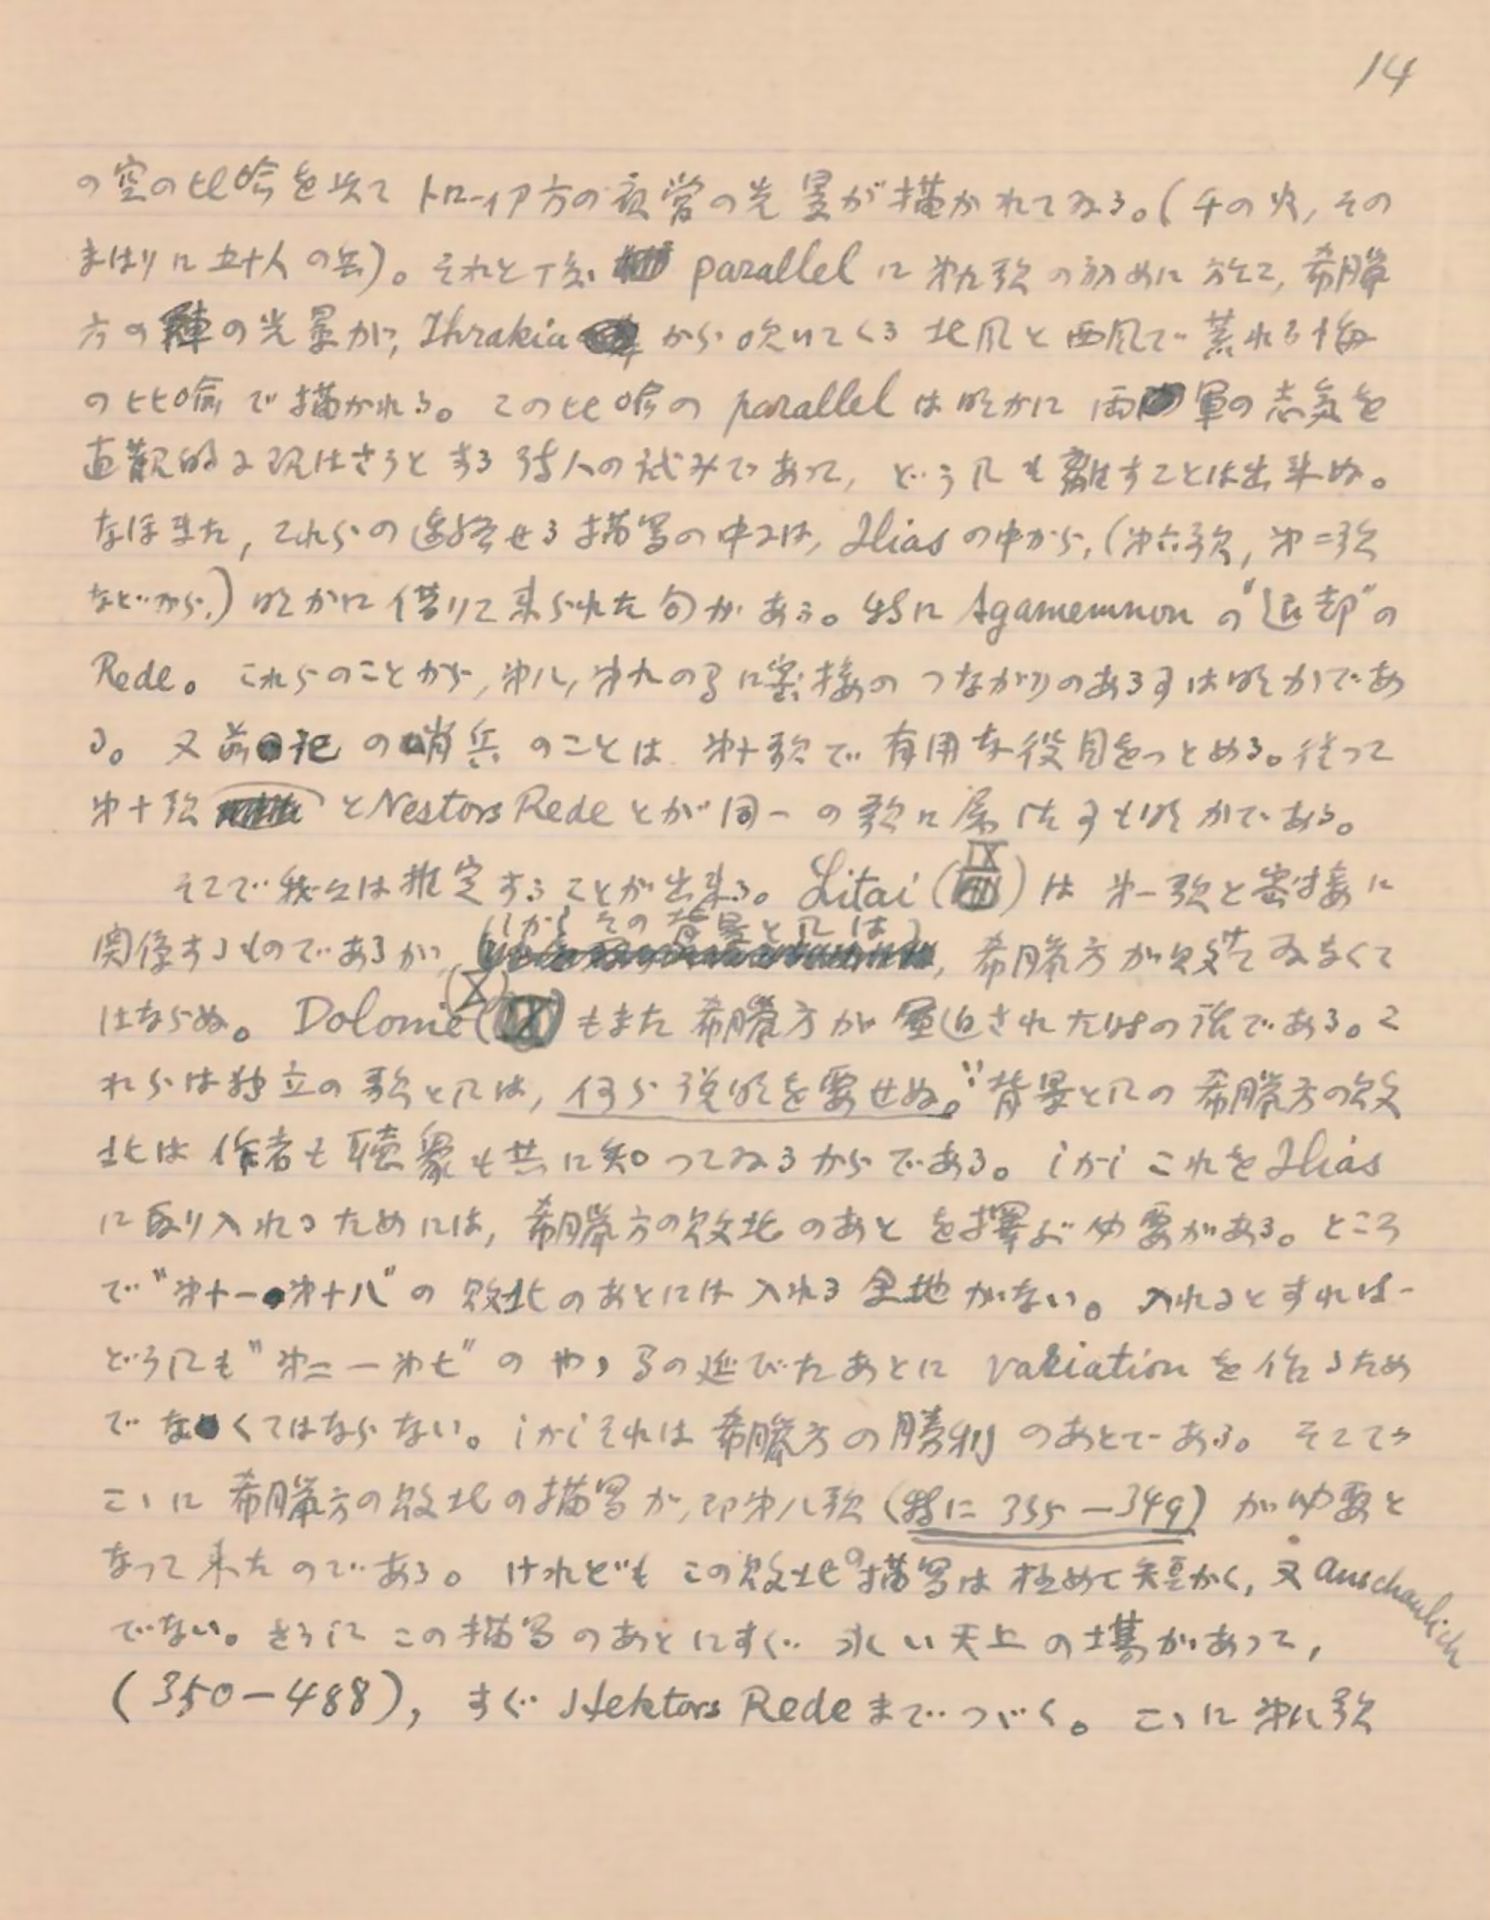 14
の空の比喩を以て トローイア方の夜営の光景が描かれてゐる。(千の火, その
まはりに五十人の兵)。それと丁度 parallel に 第九歌の初めに於て, 希臘
方の陣の光景が, Thrakia から吹いてくる 北風と西風で荒れる海
の比喩で描かれる。この比喩の parallel は明かに 両軍の志気を
直観的に現はさうとする詩人の試みであって, どうしても離すことは出来ぬ。
なほまた, これらの連絡せる描写の中には, Ilias の中から, (第六歌, 第二歌
などから,) 明かに借りて来られた句がある。特に Agamemnon の"退却"の
Rede。 これらのことから, 第八, 第九の間に密接のつながりのある事は明かであ
る。 又前記の哨兵のことは 第十歌で有用な役目をつとめる。従って
第十歌 と Nestors Rede とが同一の歌に属す事も明かである。
そこで我々は推定することが出来る。 Litai (IX) は 第一歌と密接に
関係するものであるが, (しかしその背景としては), 希臘方が敗けてゐなくて
はならぬ。 Dolonie (X) もまた希臘方が圧迫された時の話である。こ
れらは独立の歌としては, 何ら説明を要せぬ。∵背景としての希臘方の敗
北は 作者も聴衆も共に知ってゐるからである。しかし これを Ilias
に取り入れるためには, 希臘方の敗北のあとを擇ぶ必要がある。ところ
で "第十一・第十八" の 敗北のあとには入れる余地がない。 入れるとすれば
どうしても "第二 — 第七" の やゝ間の延びたあとに variation を作るため
でなくてはならない。しかしそれは 希臘方の勝利のあとである。 そこで
こゝに 希臘方の敗北の描写が, 即第八歌 (特に 335 — 349) が必要と
なって来たのである。 けれども この敗北の描写は極めて短かく, 又 anschaulich
でない。さうしてこの描写のあとにすぐ 永い天上の場があって,
(350 — 488), すぐ Hektors Rede までつづく。 こゝに 第八歌